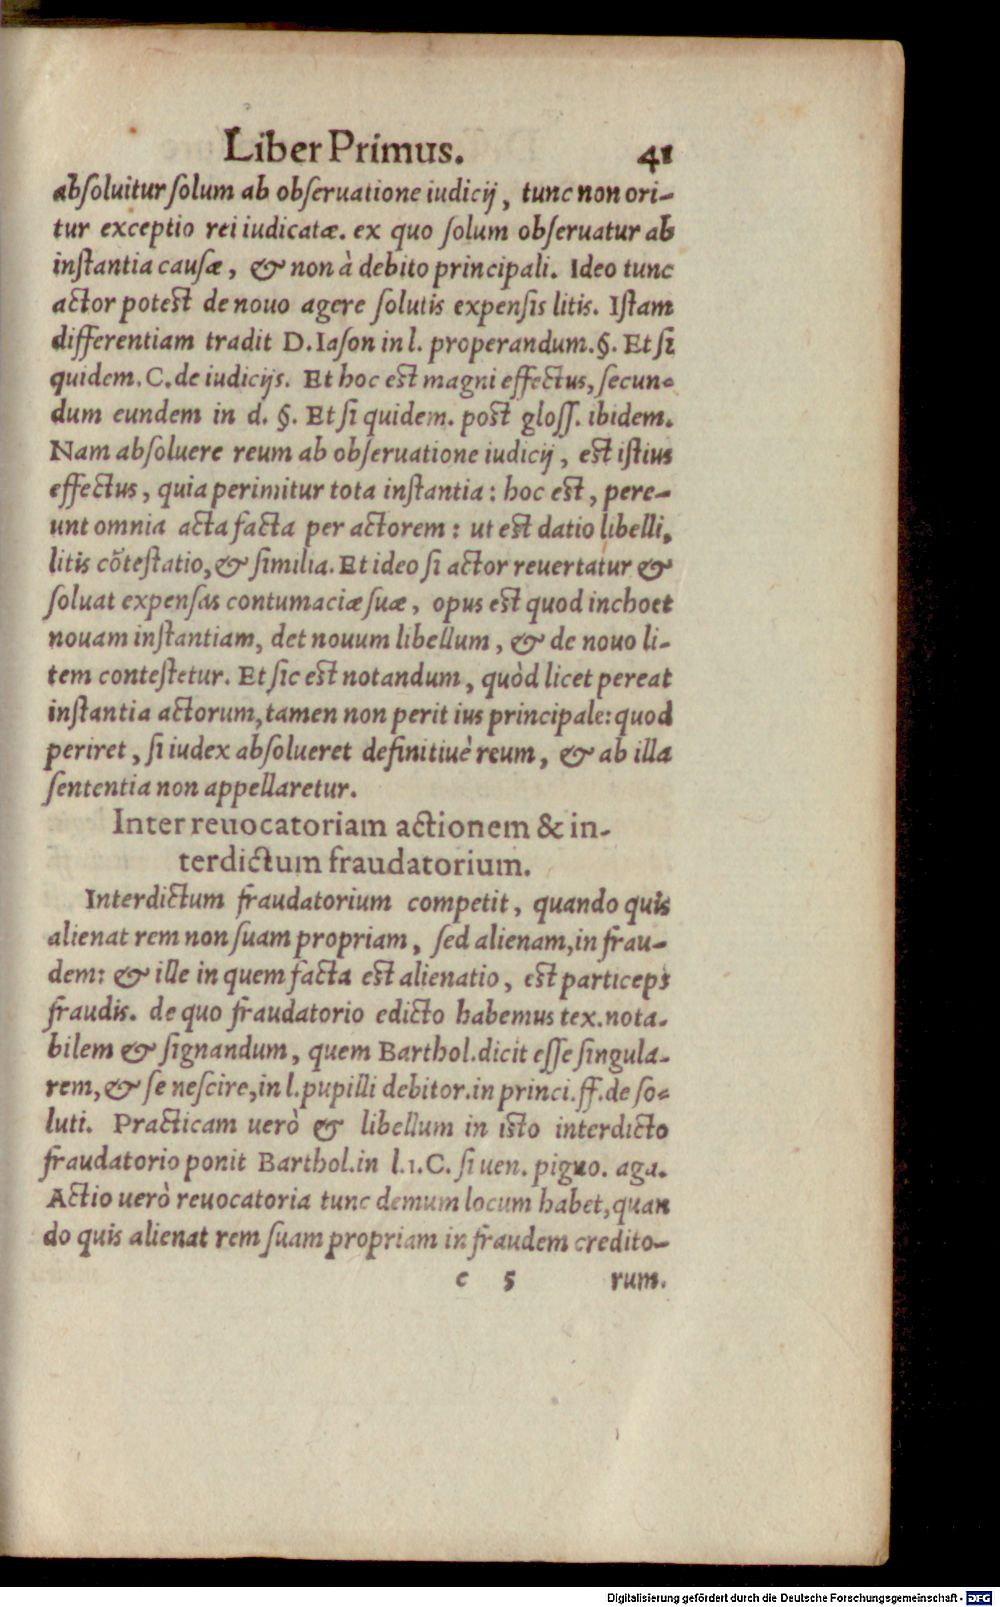 Liber Primus. 41
absoluitur solum ab obseruatione iudicij, tunc non ori-
tur exceptio rei iudicatæ. ex quo solum obseruatur ab
instantia causæ, & non à debito principali. Ideo tunc
actor potest de nouo agere solutis expensis litis. Istam
differentiam tradit D. Iason in l. properandum. §. Et si
quidem. C. de iudicijs. Et hoc est magni effectus, secun-
dum eundem in d. §. Et si quidem. post gloss. ibidem.
Nam absoluere reum ab obseruatione iudicij, est istius
effectus, quia perimitur tota instantia: hoc est, pere-
unt omnia acta facta per actorem: ut est datio libelli,
litis cõtestatio, & similia. Et ideo si actor reuertatur &
soluat expensas contumaciæ suæ, opus est quod inchoet
nouam instantiam, det nouum libellum, & de nouo li-
tem contestetur. Et sic est notandum, quòd licet pereat
instantia actorum, tamen non perit ius principale: quod
periret, si iudex absolueret definitiuè reum, & ab illa
sententia non appellaretur.
Inter reuocatoriam actionem & in-
terdictum fraudatorium.
Interdictum fraudatorium competit, quando quis
alienat rem non suam propriam, sed alienam, in frau-
dem: & ille in quem facta est alienatio, est particeps
fraudis. de quo fraudatorio edicto habemus tex. nota-
bilem & signandum, quem Barthol. dicit esse singula-
rem, & se nescire, in l. pupilli debitor. in princi. ff. de so-
luti. Practicam uerò & libellum in isto interdicto
fraudatorio ponit Barthol. in l. 1. C. si uen. pigno. aga.
Actio uerò reuocatoria tunc demum locum habet, quan
do quis alienat rem suam propriam in fraudem credito-
c 5 rum.
Digitalisierung gefördert durch die Deutsche Forschungsgemeinschaft - DFG